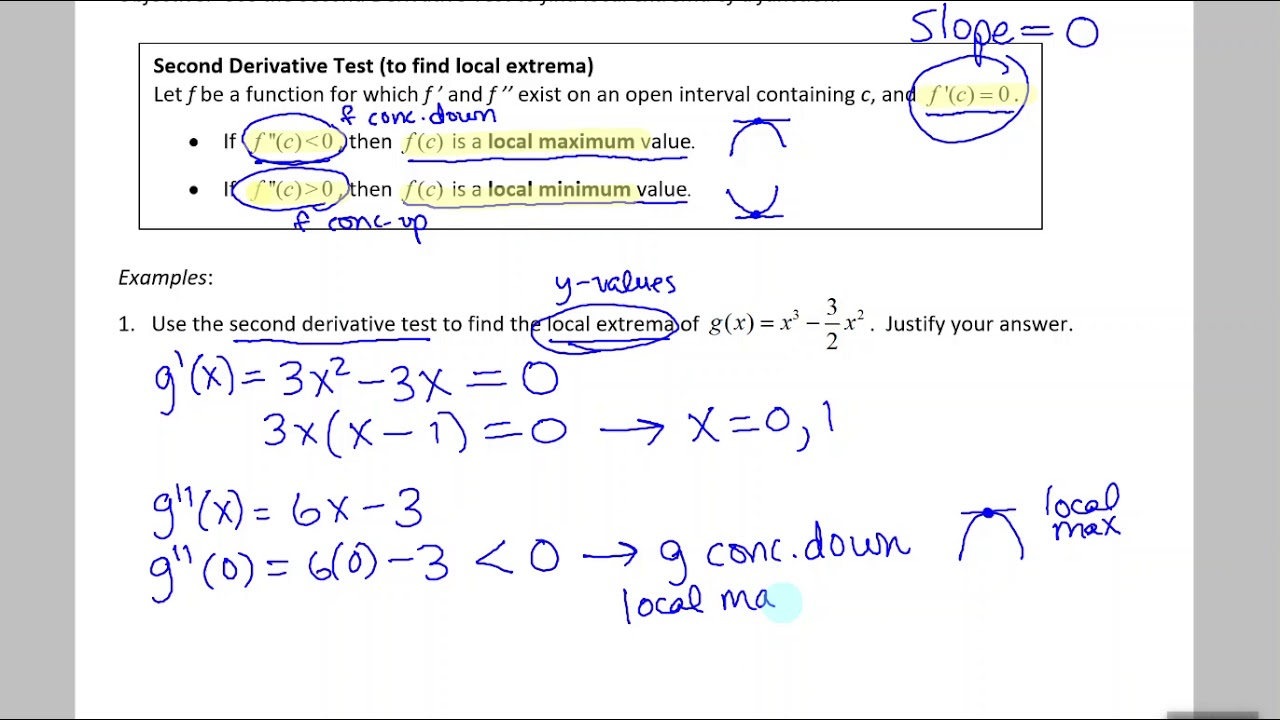 Objective: Use the Second Derivative Test to find local extrema of a function.
Slope = 0
Second Derivative Test (to find local extrema)
Let f be a function for which f ′ and f ′′ exist on an open interval containing c, and f '(c) = 0.
f conc. down
• If f "(c) < 0, then f(c) is a local maximum value.
• If f "(c) > 0, then f(c) is a local minimum value.
f conc. up
Examples:
y-values
1. Use the second derivative test to find the local extrema of g(x) = x³ − 3/2 x². Justify your answer.
g'(x) = 3x² − 3x = 0
3x(x − 1) = 0 → x = 0, 1
g''(x) = 6x − 3
local max
g''(0) = 6(0) − 3 < 0 → g conc. down
local ma